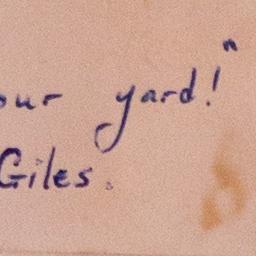 our yard!"
Giles.